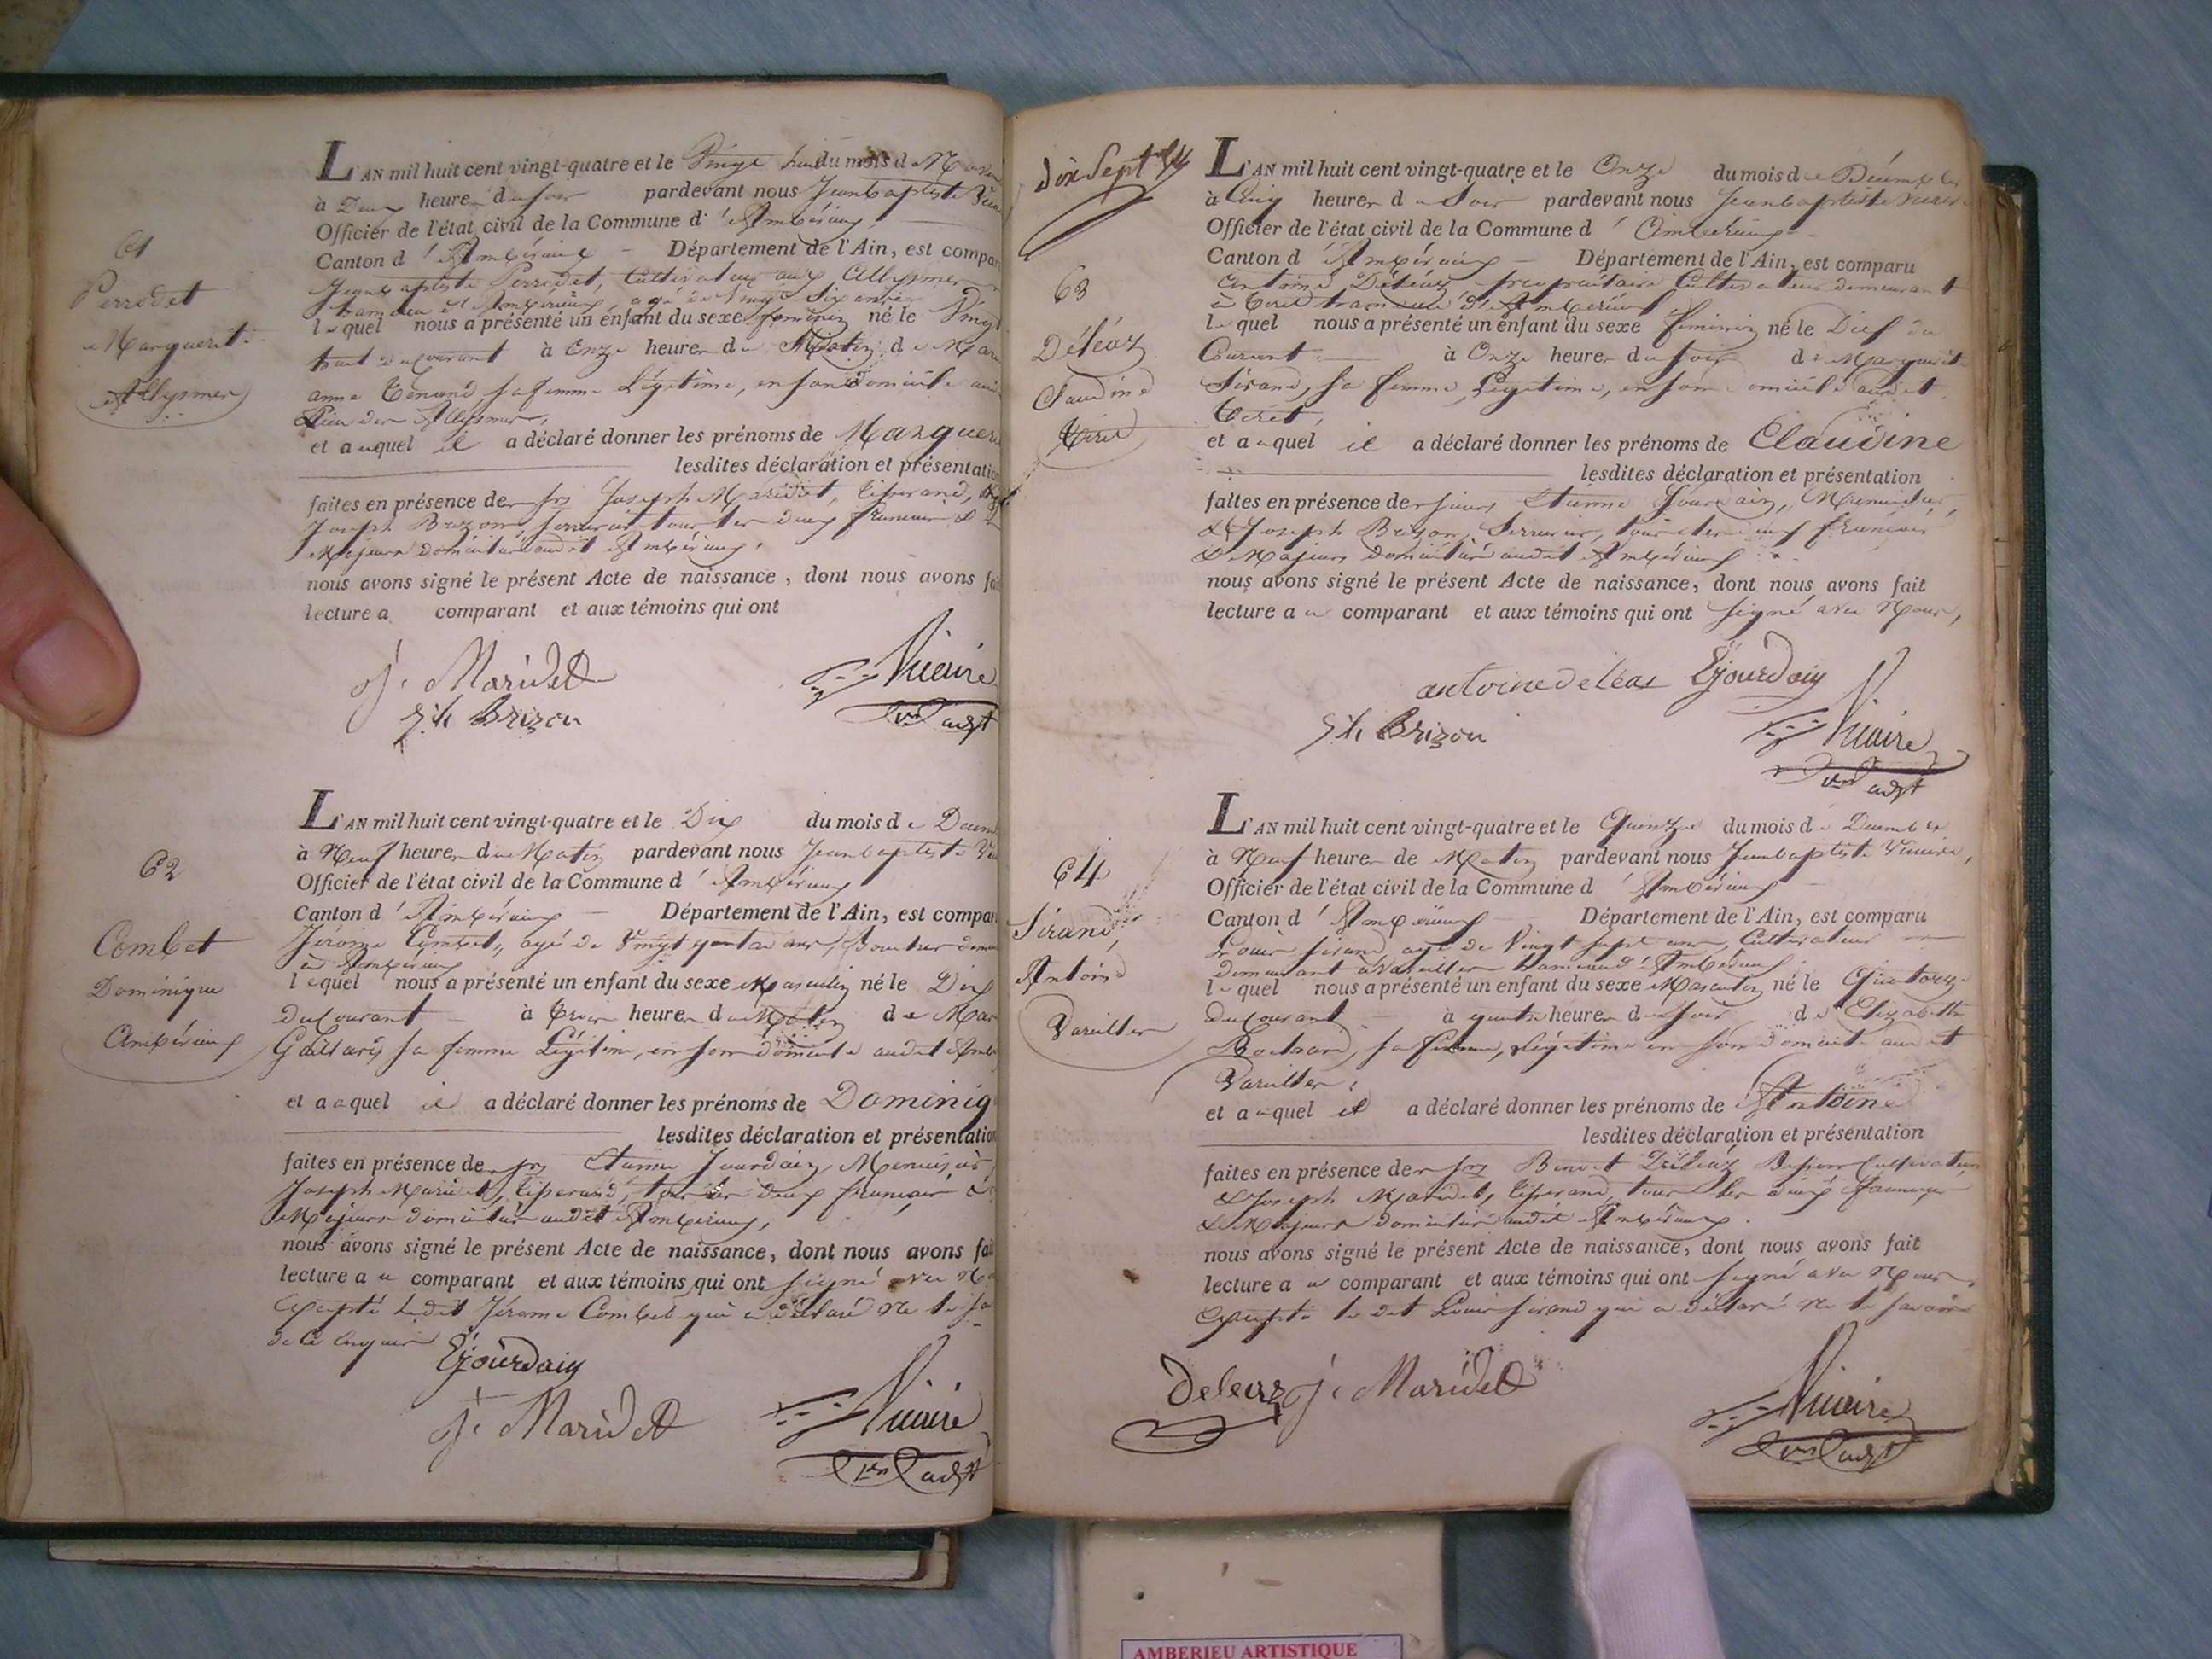 61
Perrodet
Marguerite
Allymes
L'AN mil huit cent vingt-quatre et le Vingt huit du mois de
à Deux heures du soir pardevant nous Jean baptiste
Officier de l'état civil de la Commune d'Ambérieux
Canton d'Ambérieux Département de l'Ain, est compar
Jean baptiste Perrodet, Cultivateur aux Allymes
hameau d'Ambérieux, agé de Vingt Six années
lequel nous a présenté un enfant du sexe feminin né le Vingt
huit du Courant à Onze heures du Matin de Marie
anne sa femme Légitime, en son domicile au
Lieu des Allymes,
et auquel il a déclaré donner les prénoms de Marguer
lesdites déclaration et présentation
faites en présence des Srs Joseph Maridet, tisserand,
Joseph Brizon, Serrurier, tous les deux français &
Majeurs domiciliés audit Ambérieux.
nous avons signé le présent Acte de naissance, dont nous avons fai
lecture a comparant et aux témoins qui ont
j. Maridet
Jh Brizon
Vicaire
adjt
62
Combet
Dominique
Ambérieux
L'AN mil huit cent vingt-quatre et le Dix du mois de Decem
à Neuf heures du Matin pardevant nous Jean baptiste
Officier de l'état civil de la Commune d'Ambérieux
Canton d'Ambérieux Département de l'Ain, est compar
Jérôme Combet, agé de Vingt quatre ans,
à Ambérieux
lequel nous a présenté un enfant du sexe Masculin né le Dix
du Courant à trois heures du Matin de Mar
sa femme Légitime, en son domicile audit Amb
et auquel il a déclaré donner les prénoms de Dominiq
lesdites déclaration et présentation
faites en présence des Srs Etienne Jourdain, Menuisier,
Joseph Maridet, tisserand, tous les deux français &
Majeurs domiciliés audit Ambérieux,
nous avons signé le présent Acte de naissance, dont nous avons fai
lecture au comparant et aux témoins qui ont signé avec No
Excepté ledit Jérôme Combet qui a déclaré ne le sa
de ce enquis
Ejourdain
j. Maridet
Vicaire
adjt
dix Sept
63
Déléaz
Claudine
L'AN mil huit cent vingt-quatre et le Onze du mois de Décembre
à Cinq heures du Soir pardevant nous Jean baptiste Vicaire
Officier de l'état civil de la Commune d'Ambérieux
Canton d'Ambérieux Département de l'Ain, est comparu
Antoine Déléaz, propriétaire Cultivateur demeurant
à hameau d'Ambérieux
lequel nous a présenté un enfant du sexe feminin né le Dix du
Courant à Onze heures du soir de Marguerite
Sirand, sa femme Légitime, en son domicile audit
et auquel il a déclaré donner les prénoms de Claudine
lesdites déclaration et présentation
faites en présence des sieurs Etienne Jourdain, Menuisier,
& Joseph Brizon, Serrurier, tous les deux français
& Majeurs domiciliés audit Ambérieux
nous avons signé le présent Acte de naissance, dont nous avons fait
lecture au comparant et aux témoins qui ont signé avec Nous,
antoine deleas Ejourdain
Jh Brizon
Vicaire
adjt
64
Sirand,
Antoine
Vareilles
L'AN mil huit cent vingt-quatre et le Quinze du mois de Decembre
à Neuf heures de Matin pardevant nous Jean baptiste Vicaire,
Officier de l'état civil de la Commune d'Ambérieux
Canton d'Ambérieux Département de l'Ain, est comparu
Louis Sirand, agé de Vingt sept ans, Cultivateur
demeurant à Vareilles hameau d'Ambérieux
lequel nous a présenté un enfant du sexe Masculin né le Quatorze
du Courant à quatre heures du soir d'Elizabeth
sa femme, Légitime en son domicile audit
Vareilles,
et auquel il a déclaré donner les prénoms de Antoine
lesdites déclaration et présentation
faites en présence des Srs Benoit Déléaz Cultivateur
& Joseph Maridet, tisserand, tous les deux français
& Majeurs domiciliés audit Ambérieux.
nous avons signé le présent Acte de naissance, dont nous avons fait
lecture au comparant et aux témoins qui ont signé avec Nous,
Excepté le dit Louis Sirand qui a déclaré ne le savoir
Deleaz j. Maridet
Vicaire
adjt
AMBERIEU ARTISTIQUE